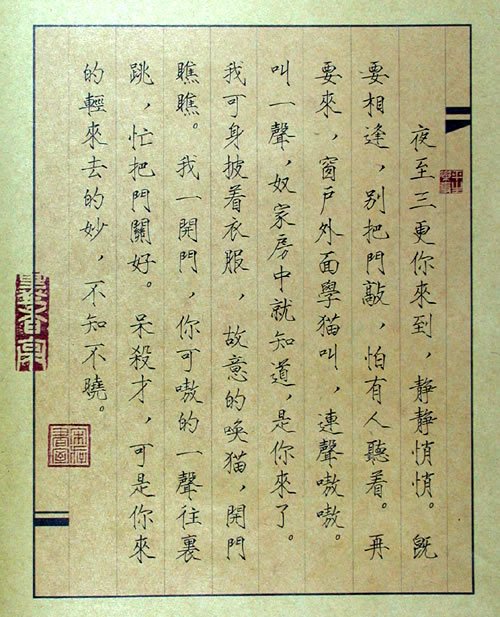 夜至三更你來到，靜靜悄悄。既
要相逢，別把門敲，怕有人聽着。再
要來，窗戶外面學猫叫，連聲嗷嗷。
叫一聲，奴家房中就知道，是你來了。
我可身披着衣服，故意的喚猫，開門
瞧瞧。我一開門，你可嗷的一聲往裏
跳，忙把門關好。呆殺才，可是你來
的輕來去的妙，不知不曉。